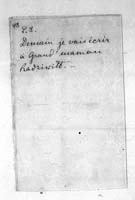 P.S.
Demain je vais écrir
à Grand maman
Radziwill. _